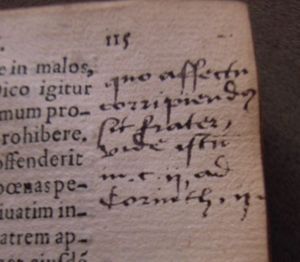 115
e in malos,
Dico igitur
mum pro-
rohibere,
offenderit
pœnas pe-
iuatim in-
atrem ap-
quo affectu
corripiendꝰ
sit frater,
vide istu
m. c. ij, ad
Corinth, ij